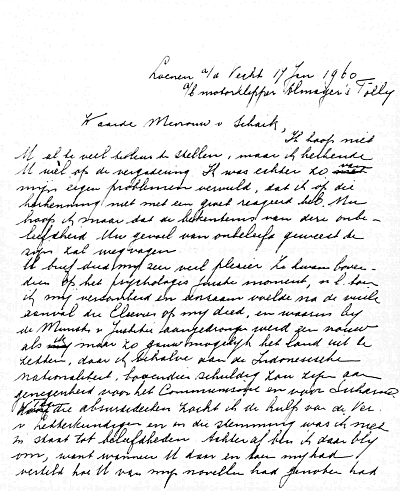 Loenen a/a Vecht 17 Jan 1960
a/b motorklepper Almayer's Folly
Waarde Mevrouw v Schaik,
Ik hoop niet
U al te veel teleur te stellen, maar ik herkende
U wel op de vergadering. Ik was echter zo
mijn eigen problemen vervuld, dat ik op die
herkenning niet met een groet reageerd heb. Nu
hoop ik maar dat de bekentenis van deze onbe-
leefdheid Uw gevoel van onbeleefd geweest te
zijn zal wegvagen
U brief deed mij zeer veel plezier Zo kwam boven-
dien op het psychologies juiste moment, n.l. toen
ik mij versomberd en eenzaam voelde na de
aanval die Elsevier op mij deed, en waarin bij
de Munst v Justitie aangedrongen werd zo nauw
als maar zo gauw mogelijk het land uit te
zetten, daar ik behalve aan de Indonesische
nationaliteit, bovendien schuldig zou zijn aan
genegenheid voor het Communisme en voor
die absurditeiten zocht ik de hulp van de Ver.
v Letterkundigen en in die stemming was ik niet
in staat tot beleefdheden. Achteraf ben ik daar blij
om, want wanneer U daar en toen mij had
verteld hoe U van mijn novellen had genoten had